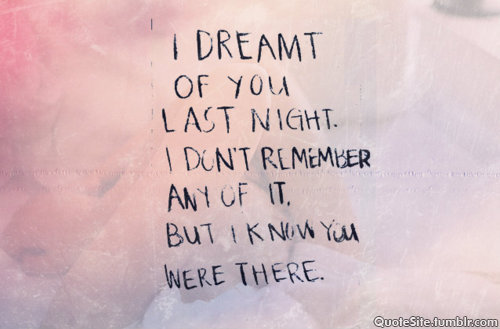 I DREAMT
OF YOU
LAST NIGHT.
I DON'T REMEMBER
ANY OF IT,
BUT I KNOW YOU
WERE THERE.
QuoteSite.tumblr.com